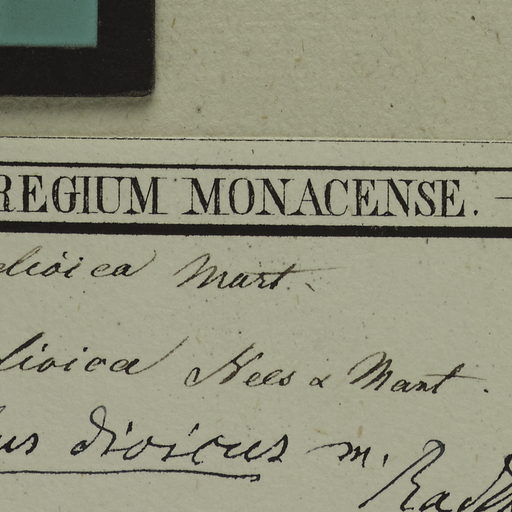 REGIUM MONACENSE. —
dioica Mart.
dioica Nees & Mart.
us dioicus m.
Radlk